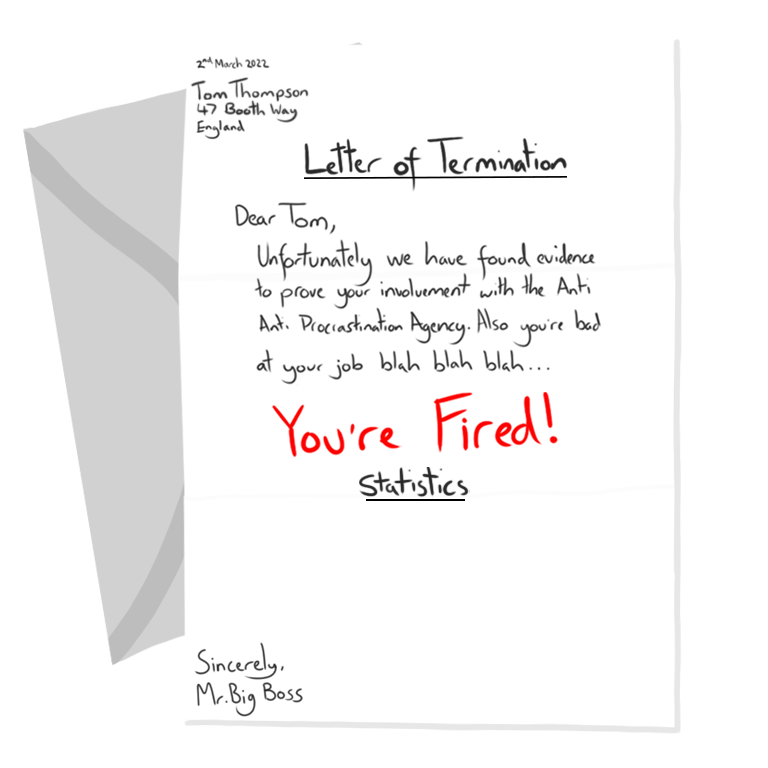 2nd March 2022
Tom Thompson
47 Booth Way
England
Letter of Termination
Dear Tom,
Unfortunately we have found evidence
to prove your involvement with the Anti
Anti Procrastination Agency. Also you're bad
at your job blah blah blah...
You're Fired!
Statistics
Sincerely,
Mr. Big Boss